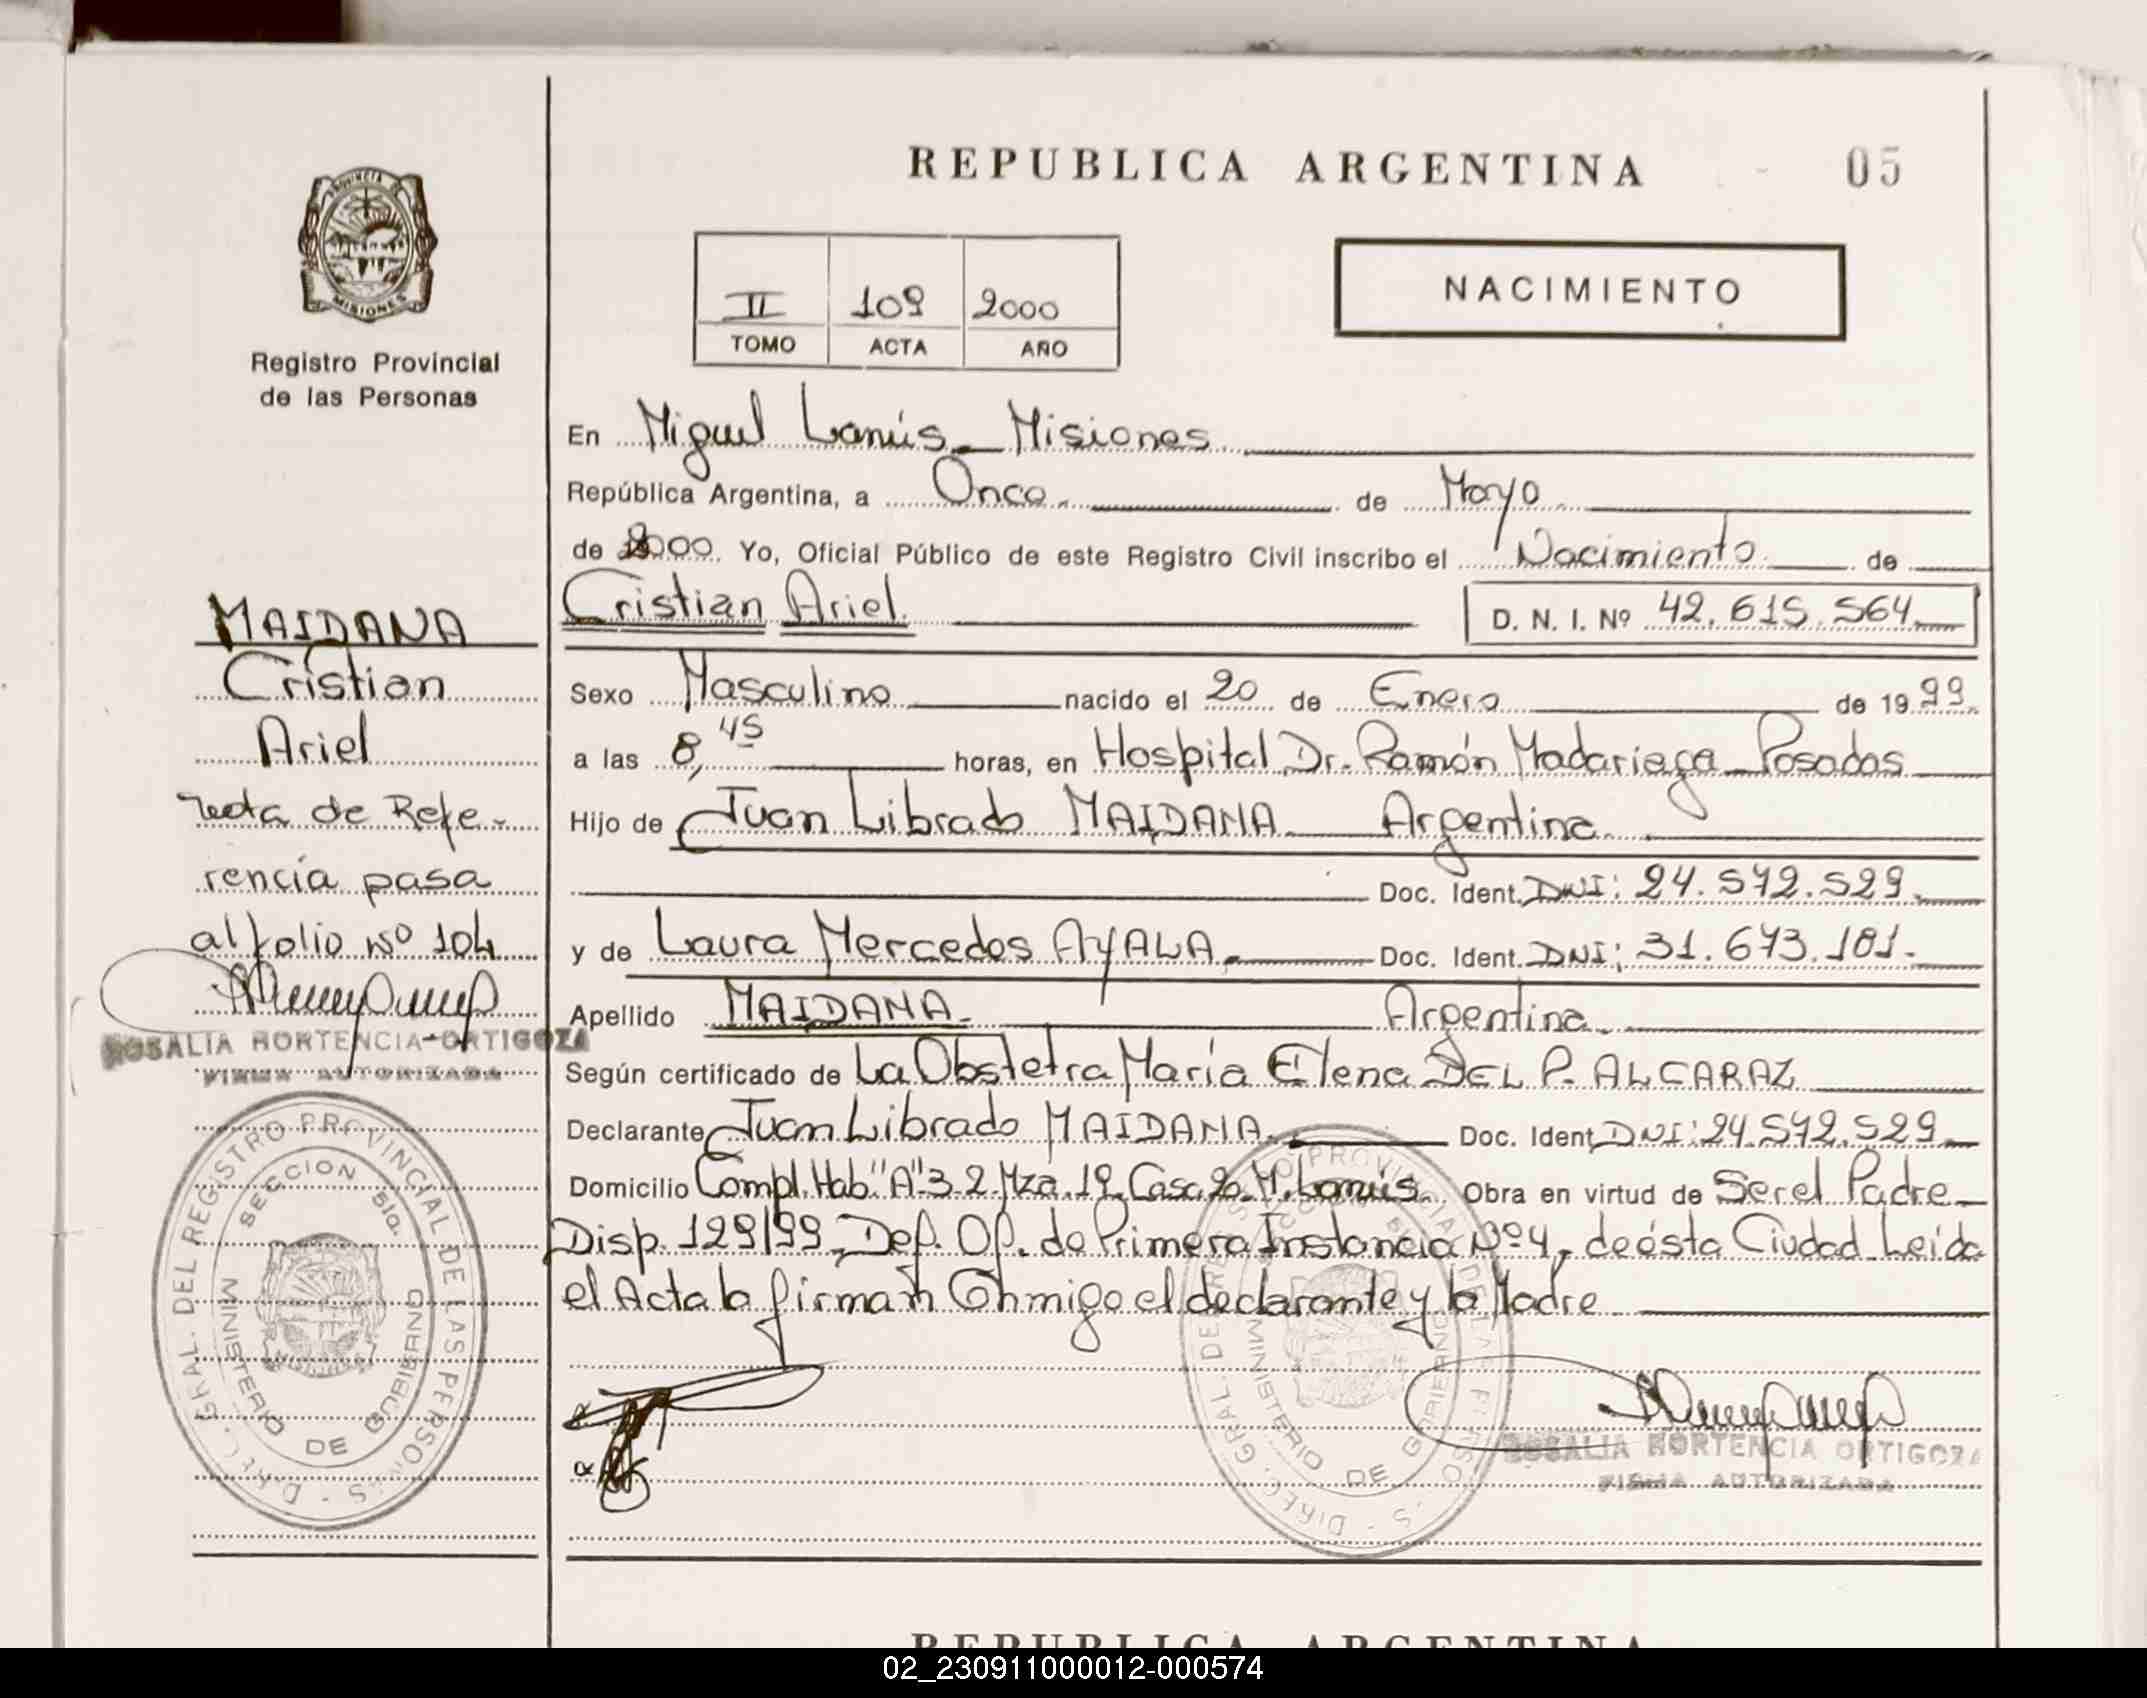 REPUBLICA ARGENTINA
05
PROVINCIA DE
MISIONES
Registro Provincial
de las Personas
II 109 2000
TOMO ACTA AÑO
NACIMIENTO
En Miguel Lanús_ Misiones
República Argentina, a Once. de Mayo
de 2000 Yo, Oficial Público de este Registro Civil inscribo el Nacimiento de
Cristian Ariel.
D. N. I. Nº 42.615.564
Sexo Masculino nacido el 20 de Enero de 1999
a las 8,45 horas, en Hospital Dr. Ramón Madariaga_Posadas
Hijo de Juan Librado MAIDANA Argentina
Doc. Ident. DNI: 24.572.529.
y de Laura Mercedes AYALA. Doc. Ident. DNI: 31.673.181.
Apellido MAIDANA. Argentina.
Según certificado de La Obstetra María Elena DEL P. ALCARAZ
Declarante Juan Librado MAIDANA. Doc. Ident. DNI: 24.572.529
Domicilio Compl. Hab "A" 3 2 Mza. 19. Casa 20. M. Lanús. Obra en virtud de Ser el Padre_
Disp. 129/99, Def. Of. de Primera Instancia Nº 4, de ésta Ciudad Leida
el Acta la firman Conmigo el declarante y la Madre
MAIDANA
Cristian
Ariel
Nota de Refe-
rencia pasa
al folio Nº 104
ROSALIA HORTENCIA ORTIGOZA
FIRMA AUTORIZADA
DIREC. GRAL. DEL REGISTRO PROVINCIAL DE LAS PERSONAS
SECCION 5ta.
MINISTERIO DE GOBIERNO
DIREC. GRAL. DEL REGISTRO PROVINCIAL DE LAS PERSONAS
SECCION 5ta.
MINISTERIO DE GOBIERNO
ROSALIA HORTENCIA ORTIGOZA
FIRMA AUTORIZADA
REPUBLICA ARGENTINA
02_230911000012-000574